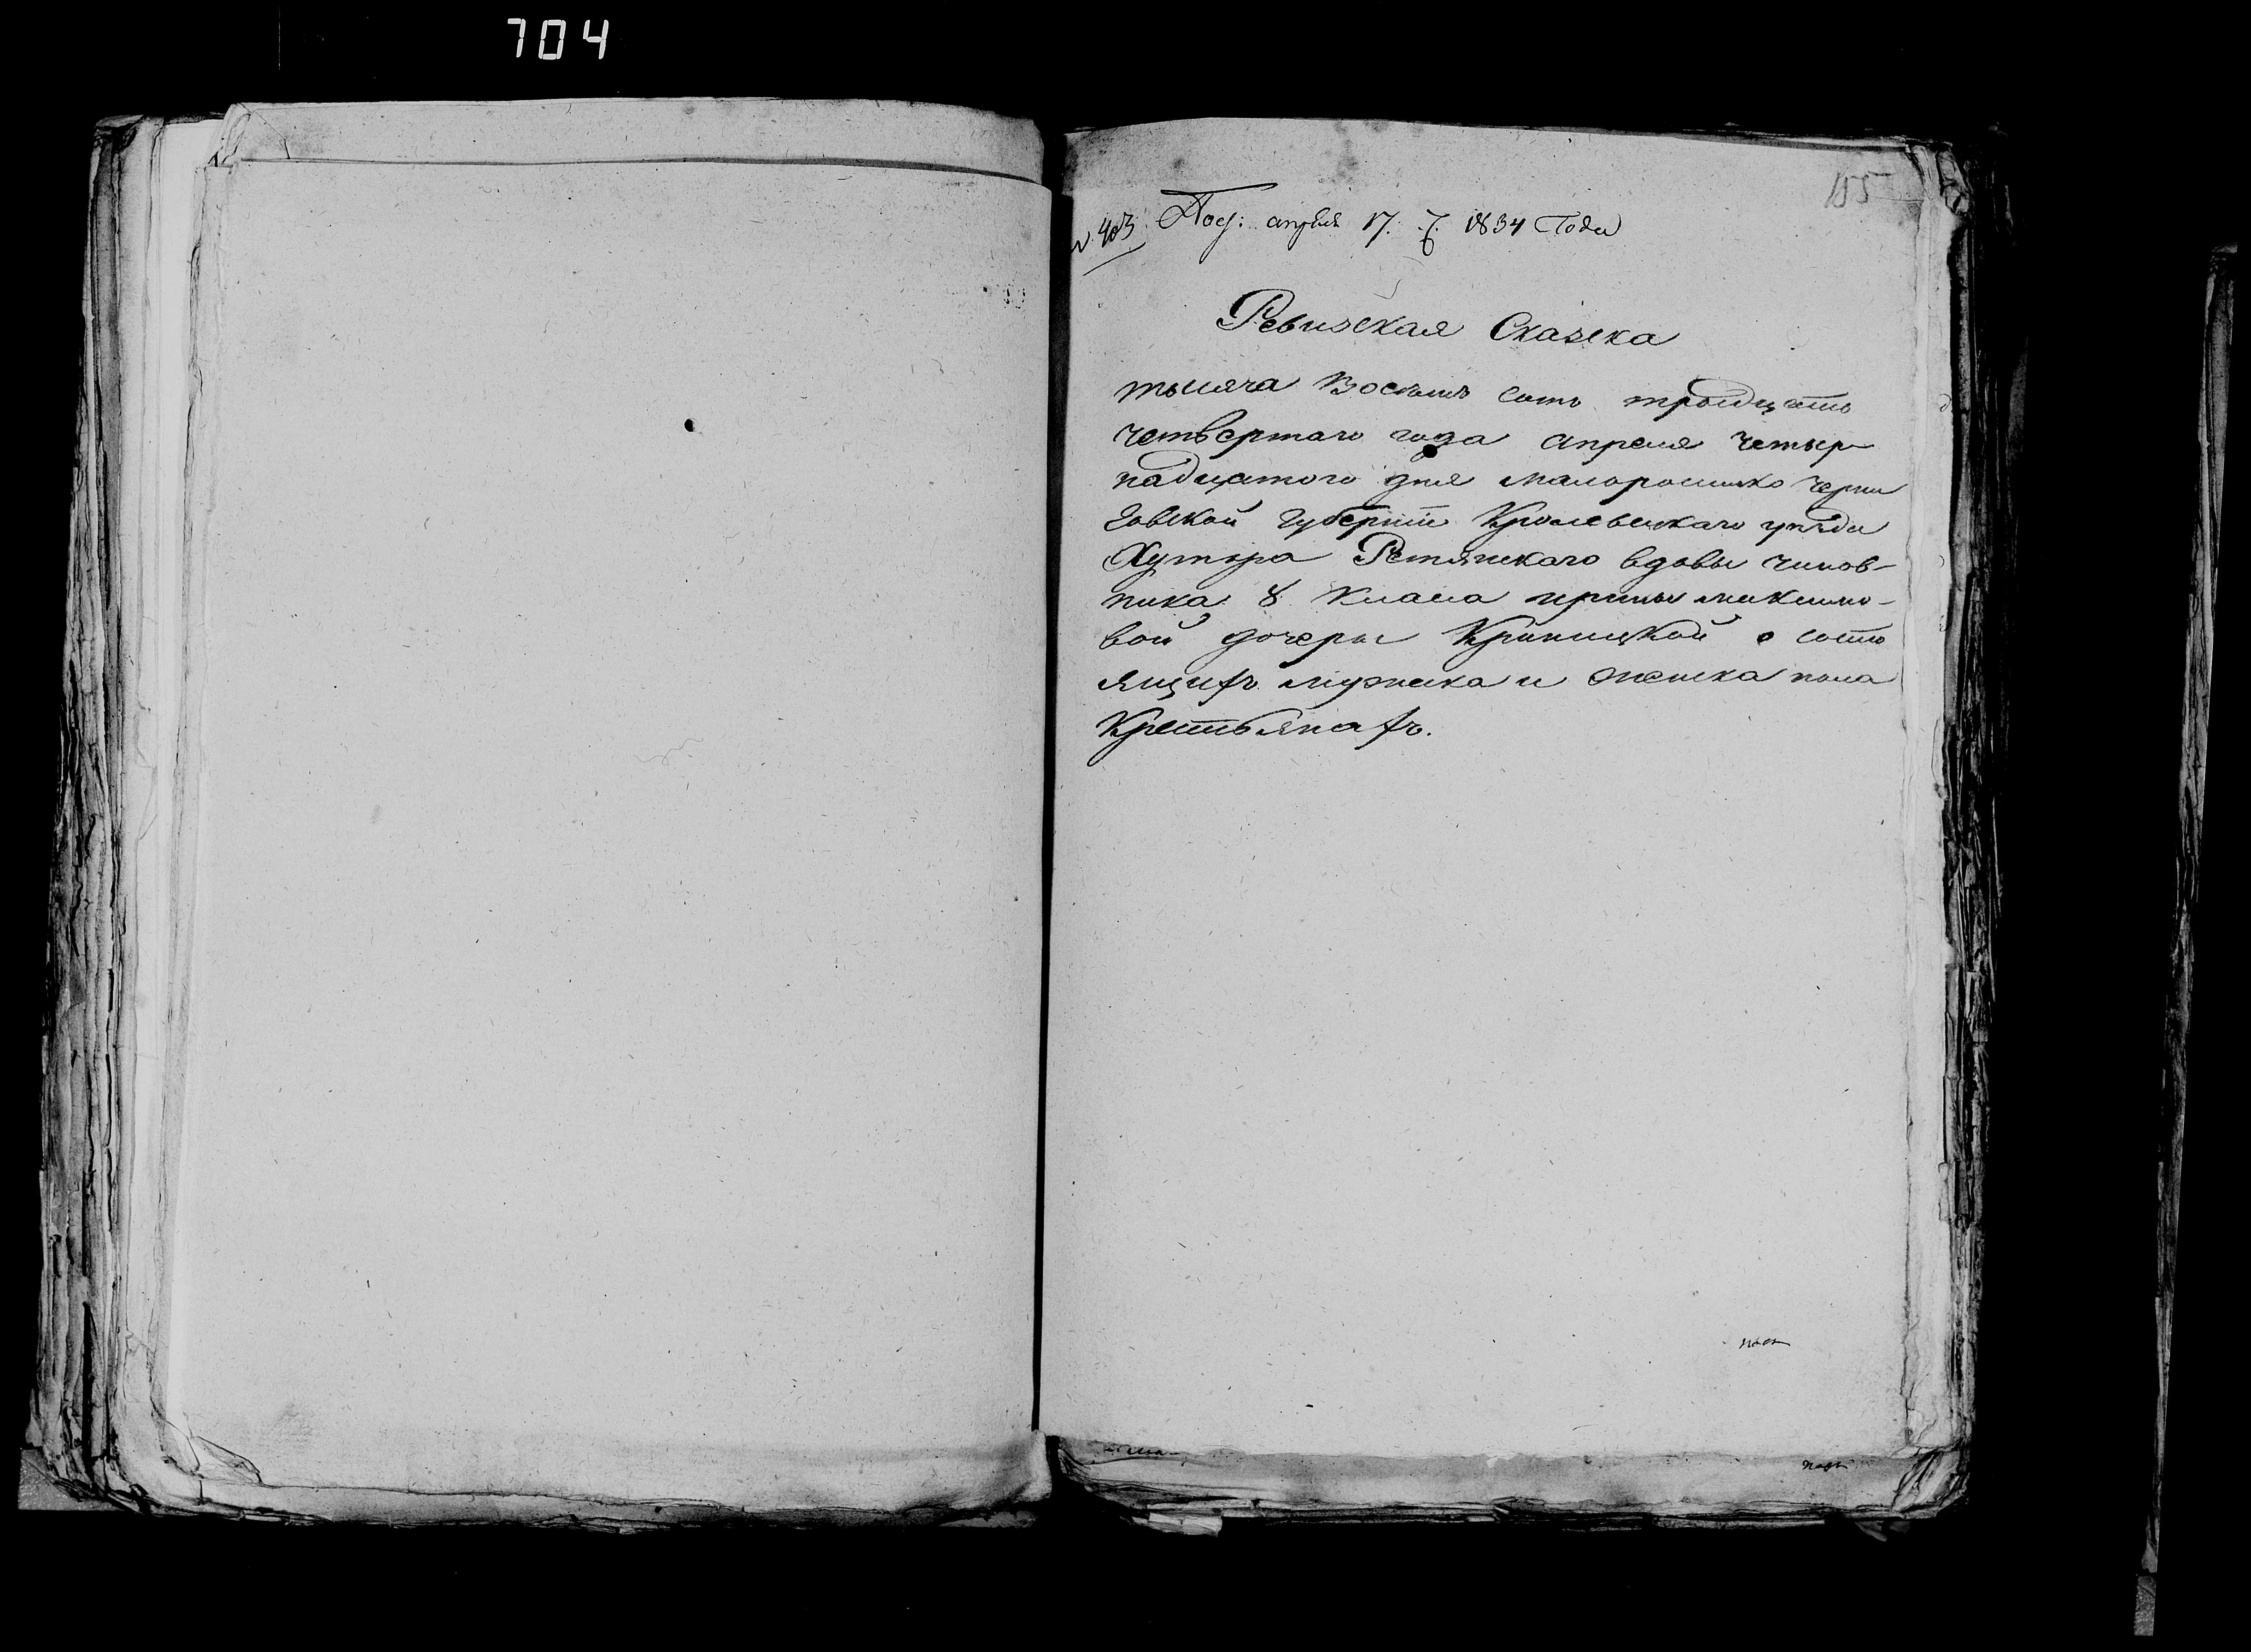 704
155
№ 403 Под: апреля 17. д. 1834 Года
Ревизская Сказска
тысяча Восѣмъ сотъ тройдцать
четвертаго года апреля четыр
надцатого дня малоросииско черни
говской губернии Кролевецкаго уѣзда
Хутора Ретянского вдовы чинов-
ника 8 Класа ирины максимо-
вой дочеры Криницкой о состо
ящихъ мужеска и женска пола
Крестьянахъ.